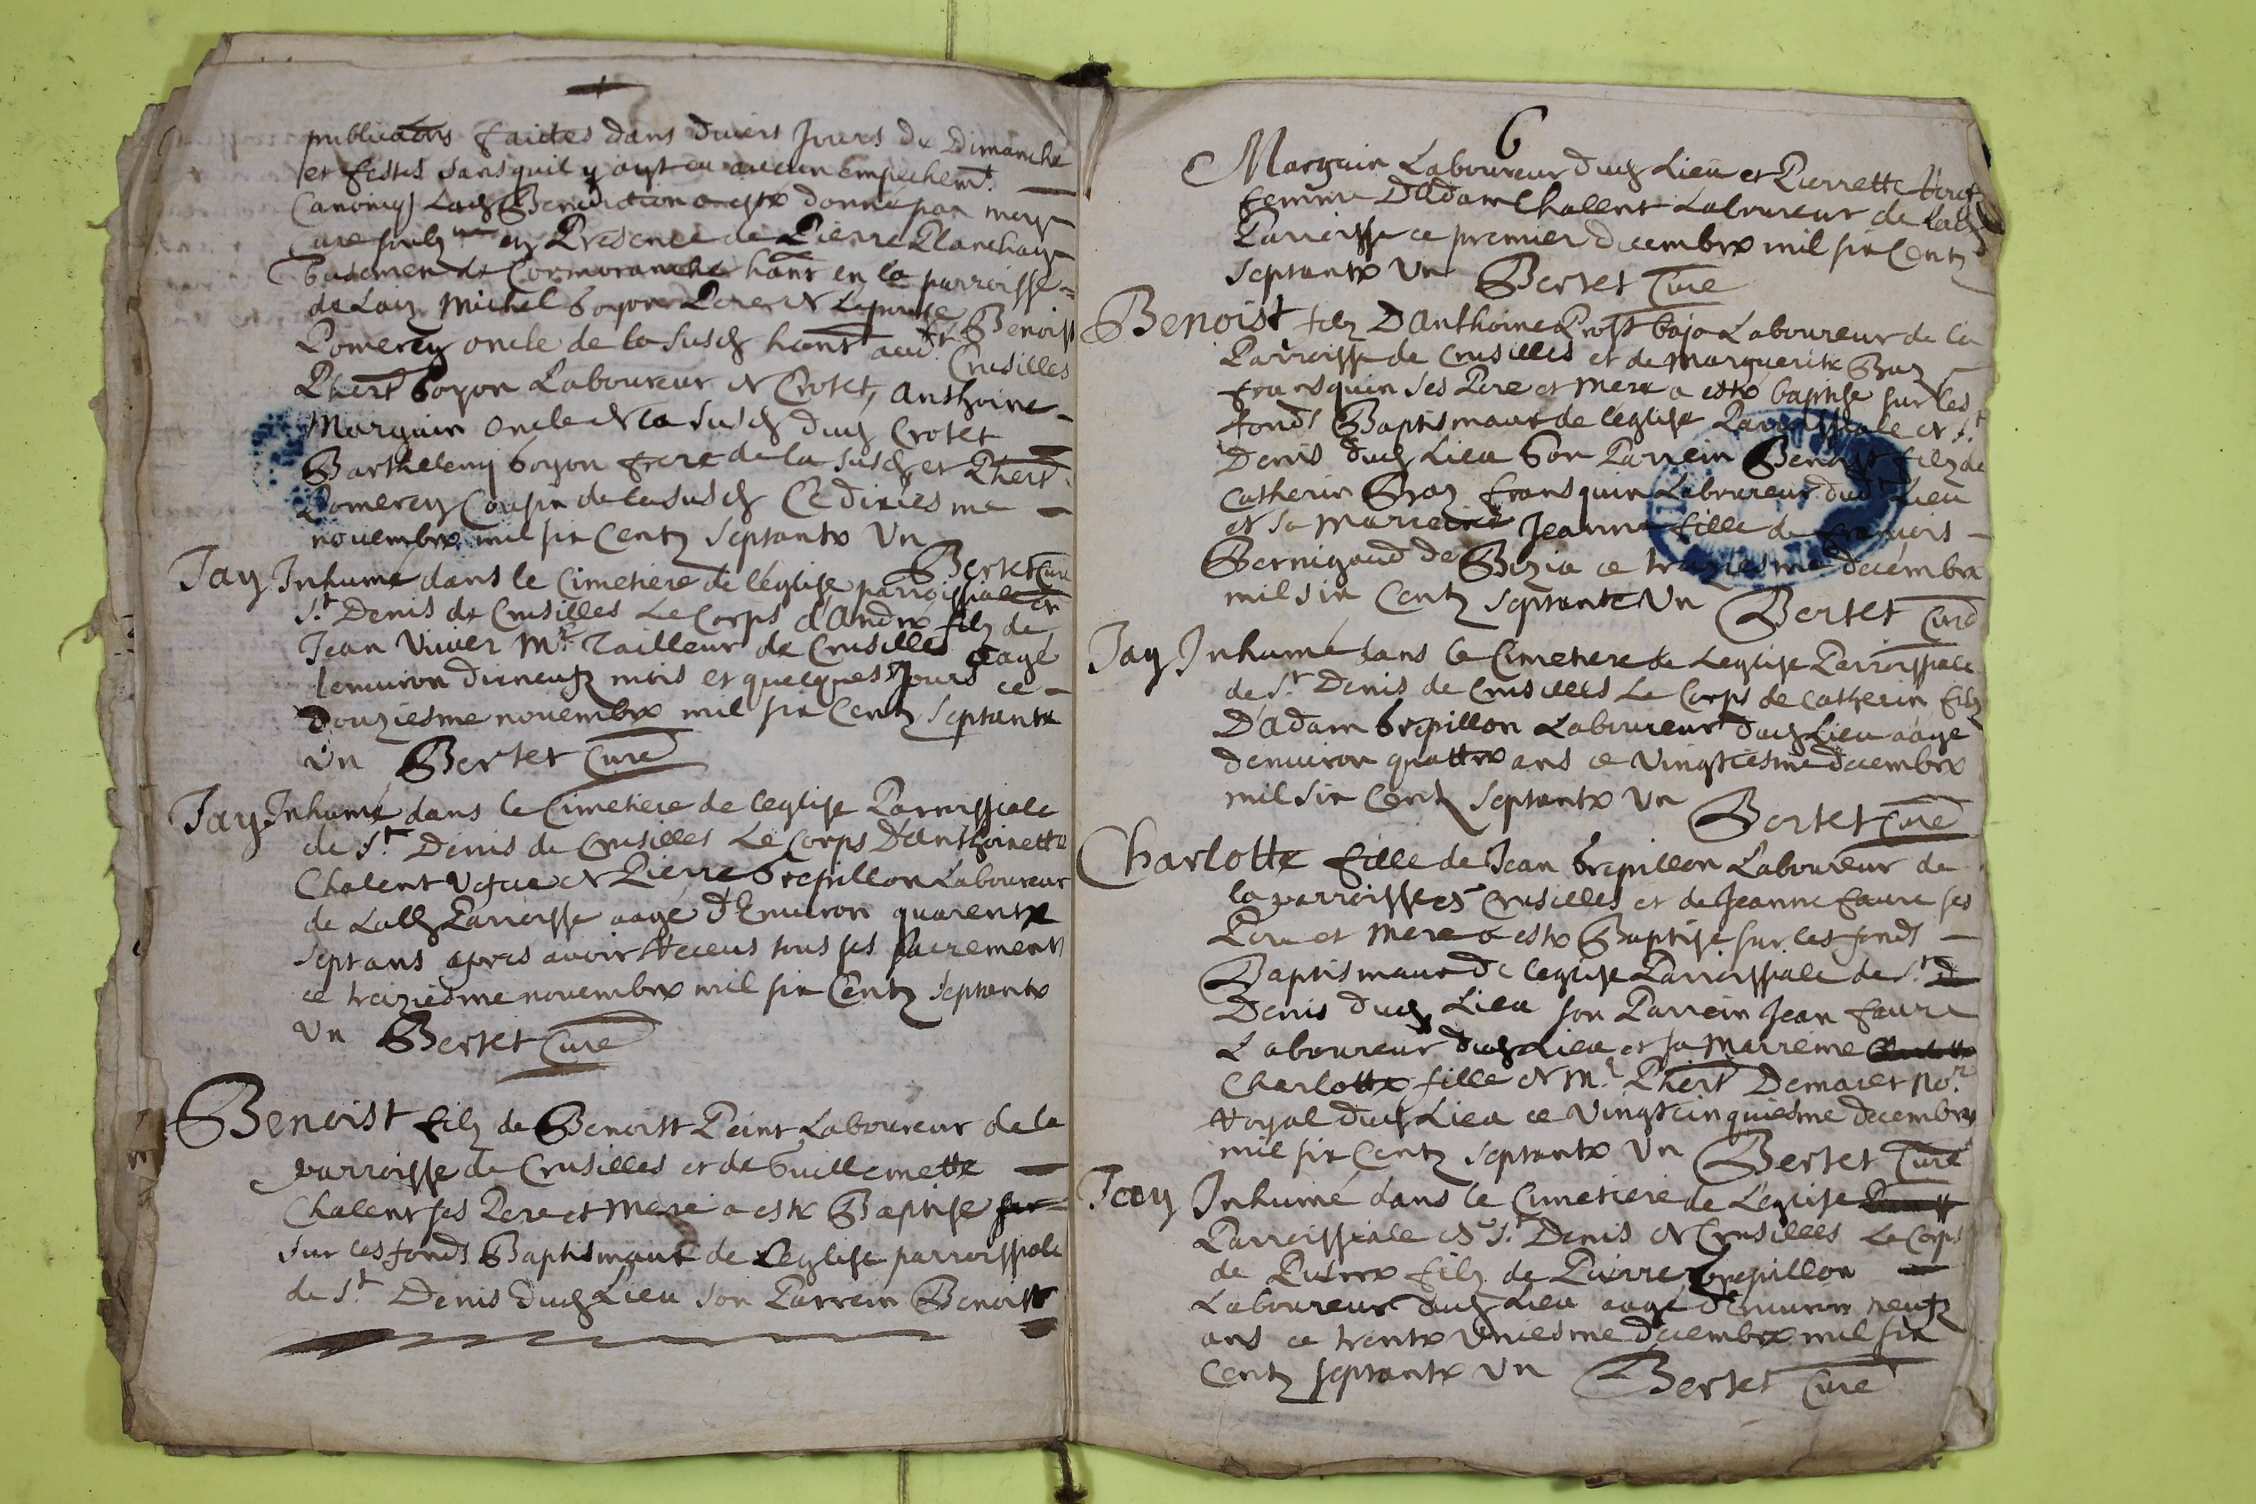 publications faictes dans divers Jours de Dimanche
et festes sans quil y ayt eu aucun empechemt.
Canonique Ladite Benediction a esté donné par moy
Curé en Presence de Pierre Planchay
de Cormoranche hant en la parroisse
de Laiz Michel boyon Pere de Lepouse
Pomerey oncle de la susd hant aud. Benoist
Crusilles
Phert boyon Laboureur de Crotet, Anthoine
Marguin oncle de la susd dud Crotet
Barthelemy boyon frere de la susd et Phert
Pomerey Cousin de la susd Ce dixiesme
novembre mil six Centz septante Un
Bertet Curé
Jay Inhumé dans le Cimetiere de léglise parroissiale de
St. Denis de Crusilles Le Corps d'André filz de
Jean Vivier Mr. Tailleur de Crusilles aagé
denviron dixneufz mois et quelques Jours ce
douziesme novembre mil six Centz septante
Un Bertet Curé
Jay Inhumé dans le Cimetiere de leglise Parroissiale
de St. Denis de Crusilles Le Corps Danthoinette
Chalent de Pierre brepillon Laboureur
de Lad Parroisse aagé d'Environ quarente
sept ans apres avoir Receus tous ses sacrements
ce treziesme novembre mil six Centz septante
Un Bertet Curé
Benoist filz de Benoist Peint Laboureur de la
parroisse de Crusilles et de Guillemette
Chalent ses Pere et Mere a esté Baptisé
sur les fonds Baptismaux de L'eglise parroissiale
de St. Denis dud Lieu son Parrein Benoist
6
Marguin Laboureur dud Lieu et Pierrette
femme Dadam Chalent Laboureur de Lad
Parroisse ce premier decembre mil six Centz
septante Un Bertet Curé
Benoist filz Danthoine Prost bajo Laboureur de la
Parroisse de Crusilles et de Marguerite Braz
fransquin ses Pere et Mere a esté baptisé sur les
fonds Baptismaux de léglise Parroissiale de St.
Denis dud Lieu Son Parrein Benoist filz de
Catherin Braz fransquin Laboureur dud Lieu
et sa Marreine Jeanne fille de francois
Bernigaud de Bizia ce treziesme décembre
mil six Centz septante Un Bertet Curé
Jay Inhumé dans le Cimetiere de Leglise Parroissiale
de St. Denis de Crusilles Le Corps de Catherin filz
D'adam brepillon Laboureur dud Lieu aagé
denviron quattre ans ce vingtiesme decembre
mil six Centz septante Un
Bertet Curé
Charlotte fille de Jean brepillon Laboureur de
la parroisse de Crusilles et de Jeanne faure ses
Pere et Mere a esté Baptisé sur les fonds
Baptismaux de leglise Parroissiale de St.
Denis dud Lieu son Parrein Jean faure
Laboureur dud Lieu et sa Marreine
Charlotte fille de Mr. Phert Demaret Nore
Royal dud Lieu ce vingtcinquiesme decembre
mil six Centz septante Un Bertet Curé
Jay Inhumé dans le Cimetiere de L'eglise
Parroissiale de St. Denis de Crusilles Le Corps
de filz de Pierre brepillon
Laboureur dud Lieu aagé d'Environ neufz
ans ce trente Uniesme decembre mil six
Centz septante Un Bertet Curé